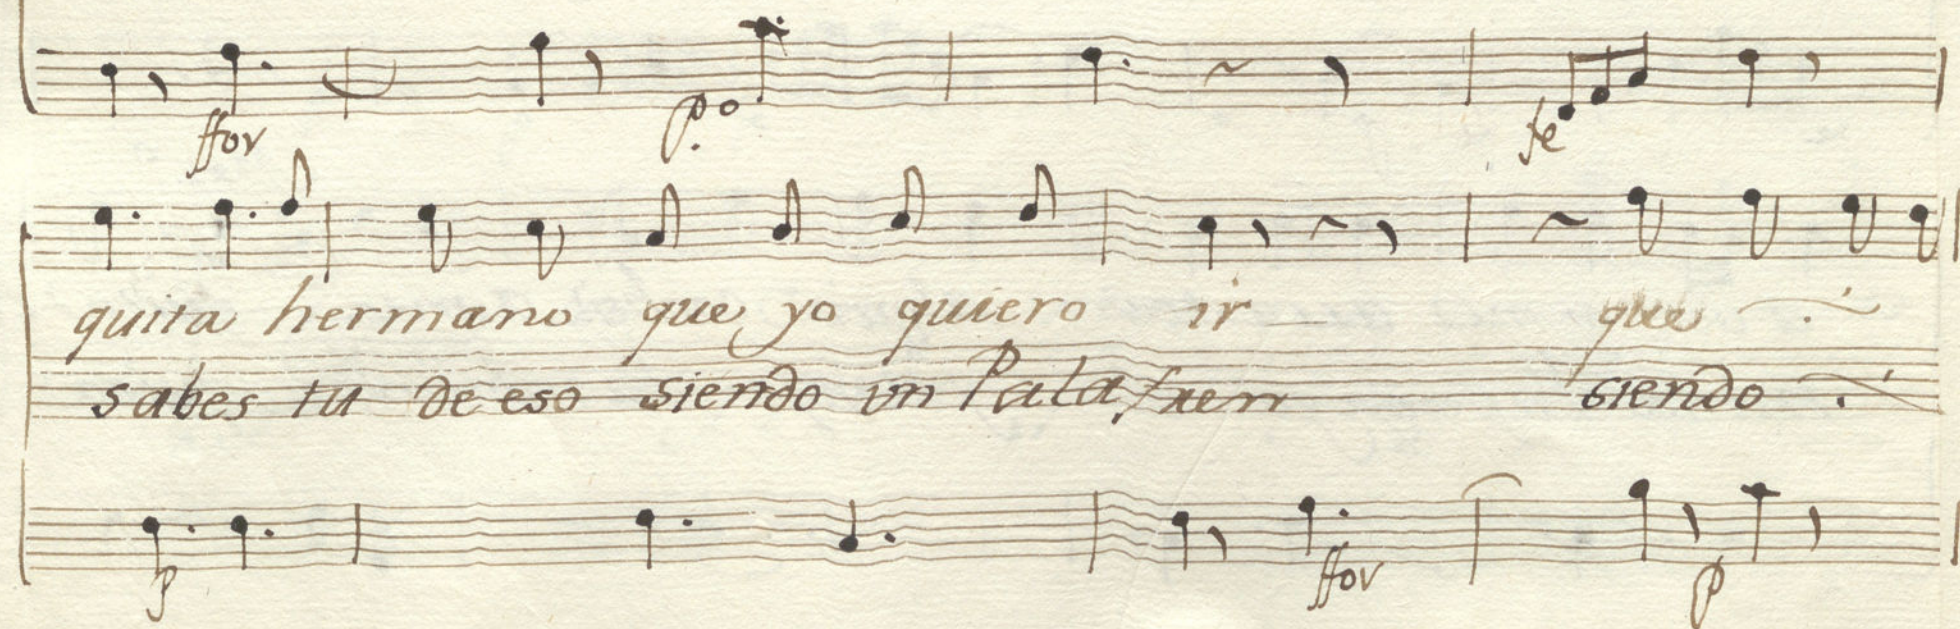 ffor p.o fe
quita hermano que yo quiero ir que
sabes tu de eso siendo un Palafren siendo
p ffor p